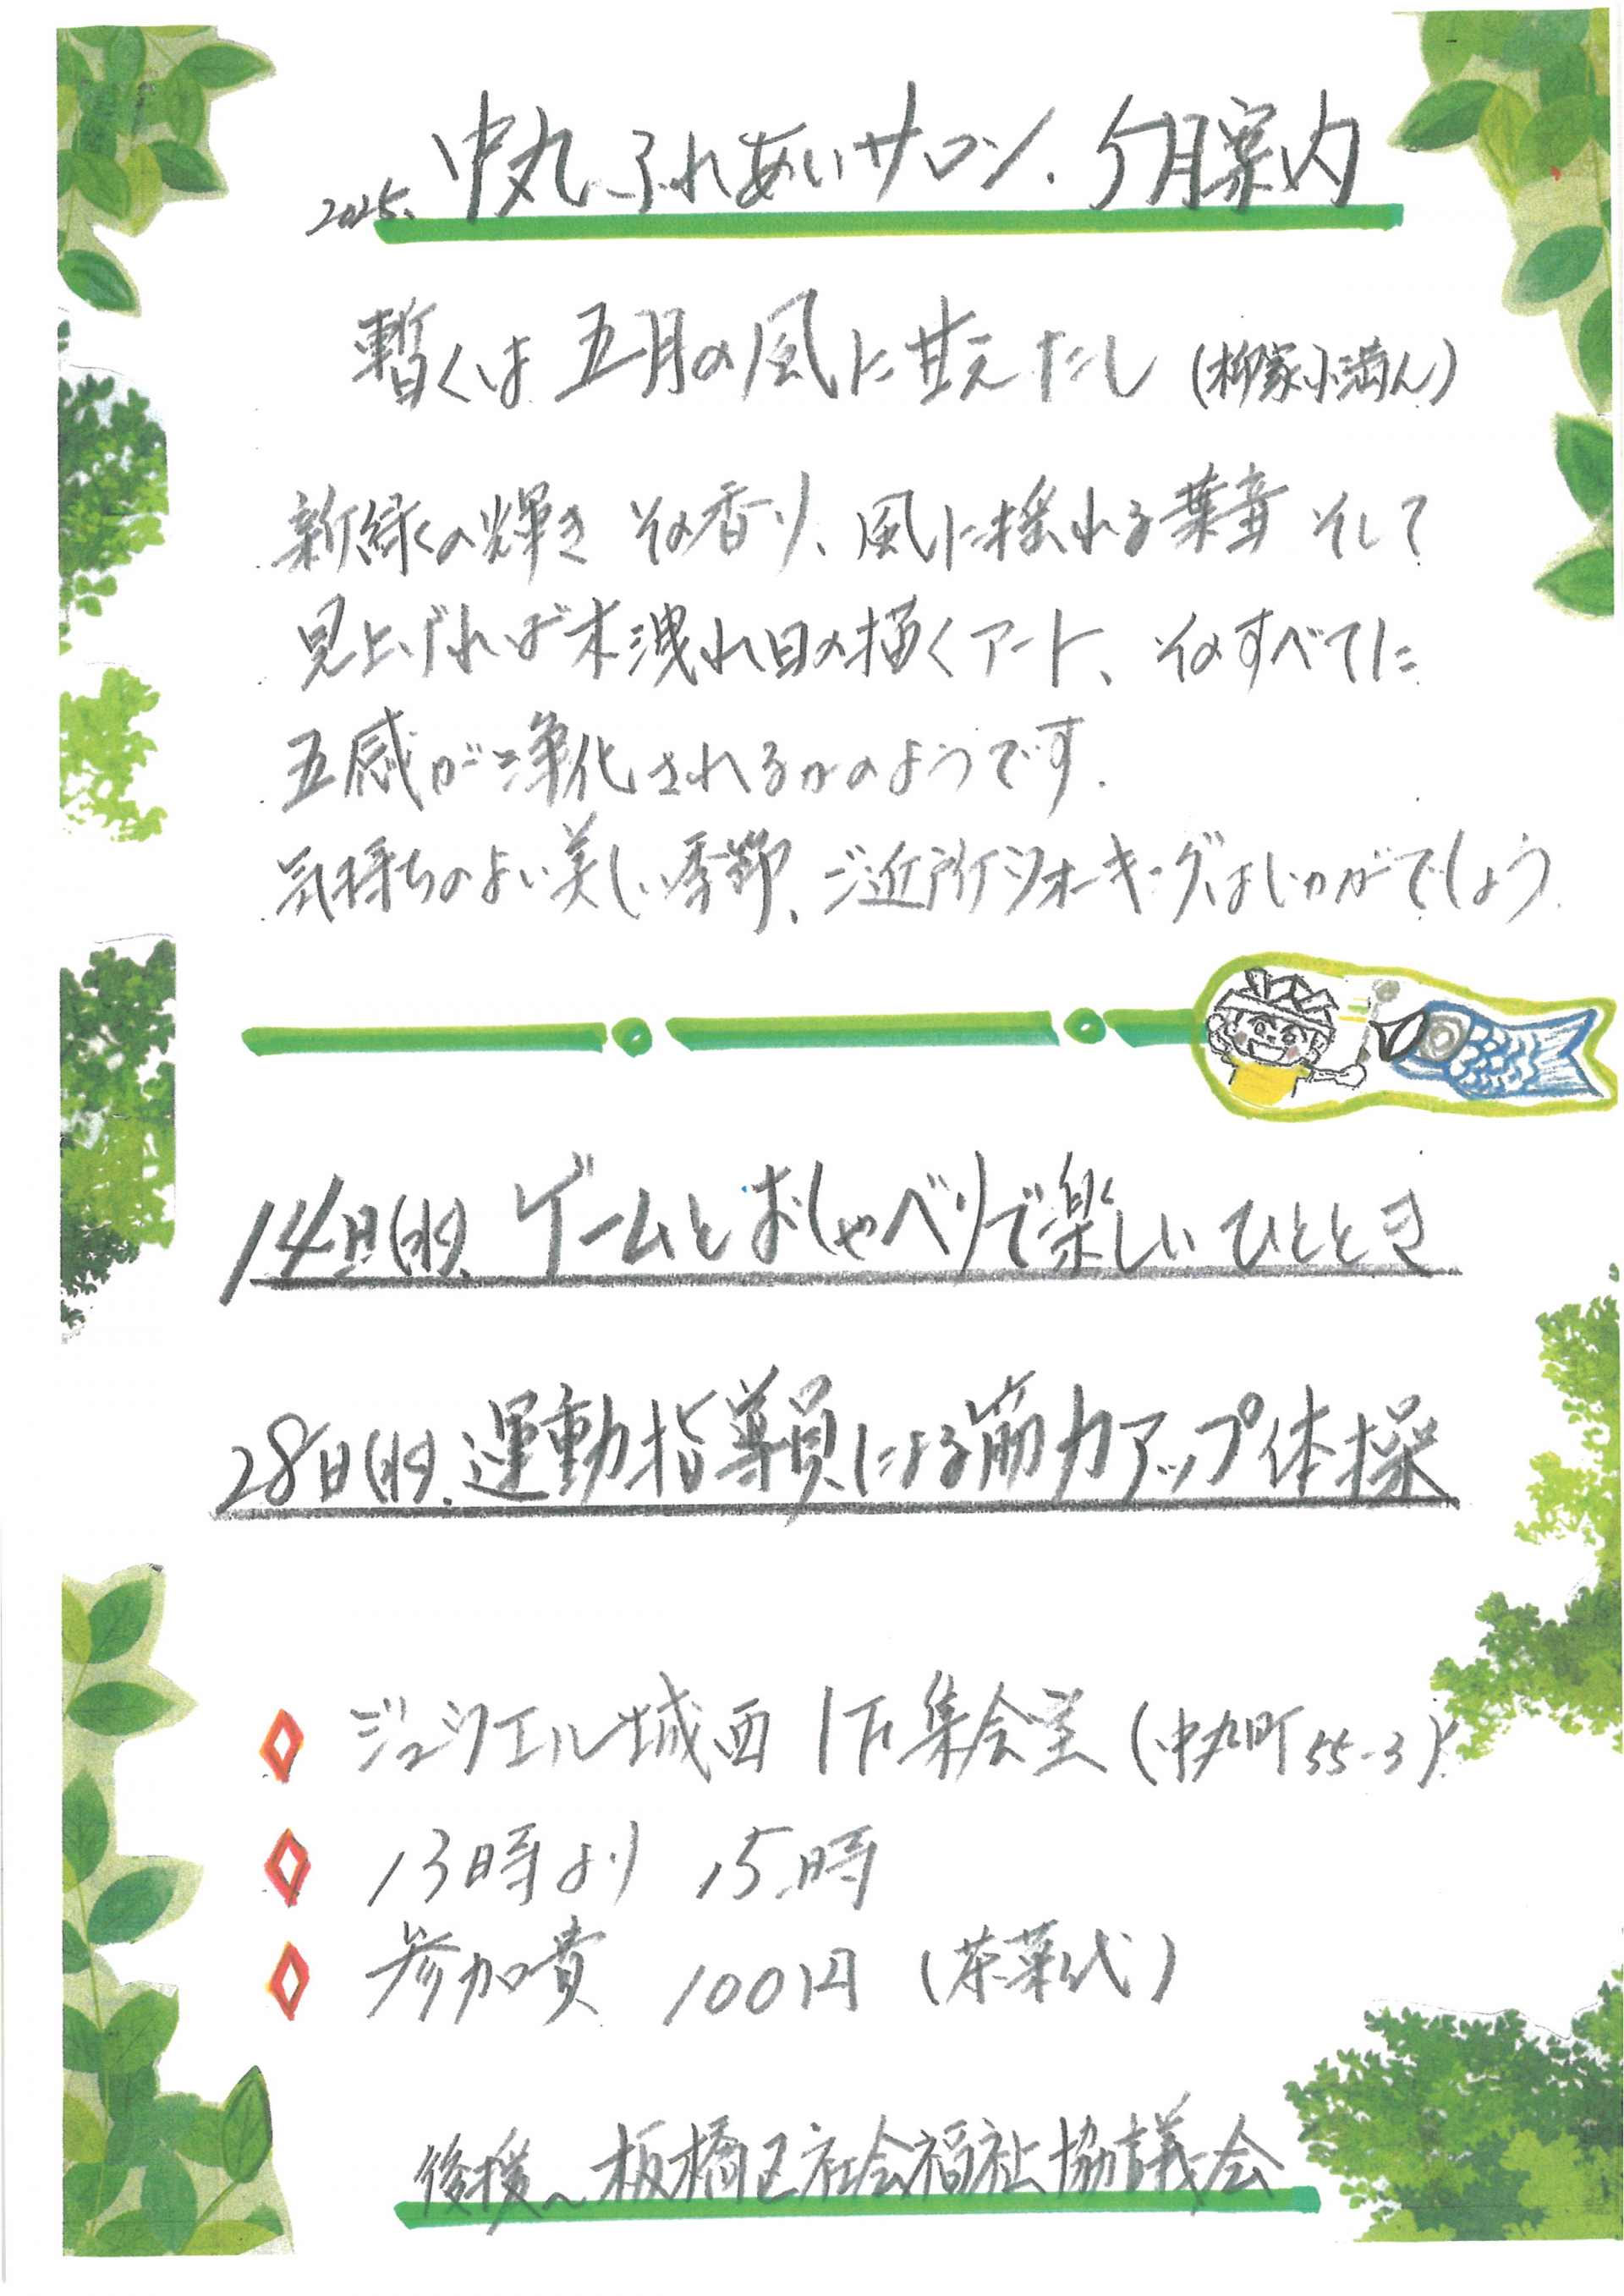 2025. 中丸ふれあいサロン. 5月案内
暫くは 五月の風に甘えたし (柳家小満ん)
新緑の輝き その香り、風に揺れる葉音 そして
見上げれば木洩れ日の描くアート、そのすべてに
五感が浄化されるかのようです.
気持ちのよい美しい季節、ご近所ウォーキングはいかがでしょう.
14日(水). ゲームとおしゃべりで楽しいひととき
28日(水). 運動指導員による筋力アップ体操
ジュシエル城西 1F集会室 (中丸町55-3)
13時より 15時
参加費 100円 (茶菓代)
後援〜板橋区社会福祉協議会